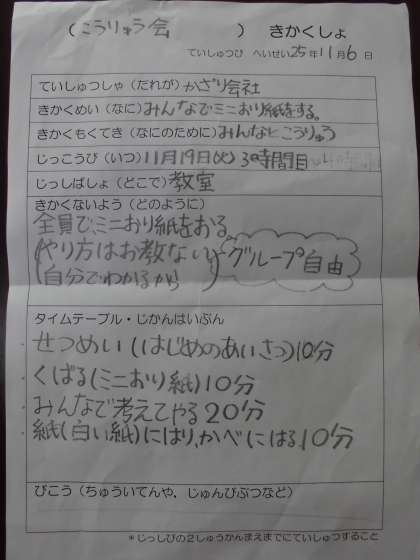 （こうりゅう会　　　　）きかくしょ
ていしゅつび　へいせい25年11月6日
ていしゅつしゃ（だれが）かざり会社
きかくめい（なに）みんなでミニおり紙をする。
きかくもくてき（なにのために）みんなとこうりゅう
じっこうび（いつ）11月19日(火) 3時間目
じっしばしょ（どこで）教室
きかくないよう（どのように）
全員で、ミニおり紙をおる。
(やり方はお教ない
自分でわかるから)
グループ自由
タイムテーブル・じかんはいぶん
せつめい(はじめのあいさつ)10分
くばる(ミニおり紙)10分
みんなで考えてやる20分
紙(白い紙)にはり、かべにはる10分
びこう（ちゅういてんや、じゅんびぶつなど）
＊じっしびの２しゅうかんまえまでにていしゅつすること